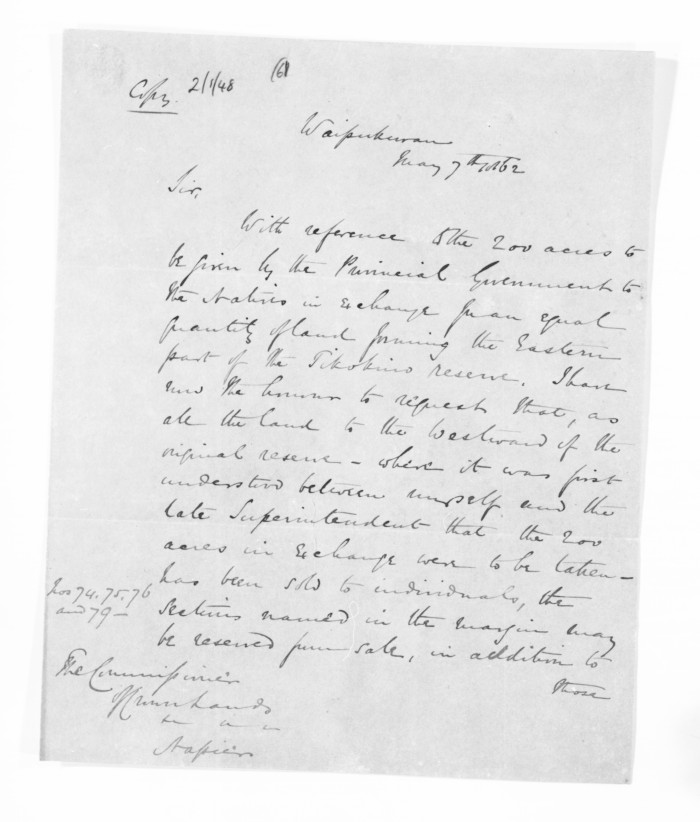 Copy. 2/1/48 (6)
Waipukurau
May 7th 1862
Sir,
With reference to the 200 acres to
be given by the Provincial Government to
the Natives in exchange for an equal
quantity of land forming the Eastern
part of the Tikokino reserve. I have
now the honour to request that, as
all the land to the Westward of the
original reserve - where it was first
understood between myself and the
late Superintendent that the 200
acres in exchange were to be taken -
has been sold to individuals, the
Nos 74. 75. 76
and 79 -
sections named in the margin may
be reserved from sale, in addition to
those
The Commissioner
of Crown Lands
Napier